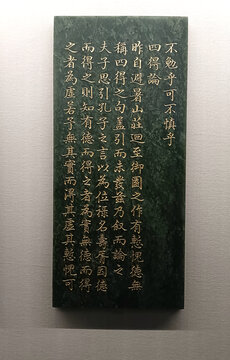 不勉乎可不慎乎
四得論
昨自避暑山莊迴至御園之作有慙德無
稱四得之句蓋引而未發茲乃叙而論之
夫子思引孔子之言以為位祿名壽胥因德
而得之則知有德而得之者為實無德而得
之者為虛君子無其實而得其虛其慙愧可